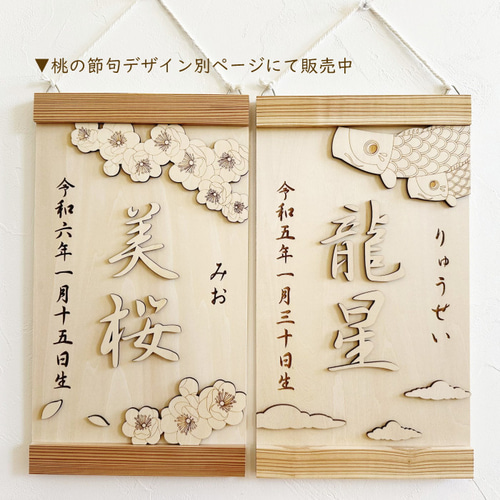 ▼桃の節句デザイン別ページにて販売中
美桜
みお
令和六年一月十五日生
龍星
りゅうせい
令和五年一月三十日生